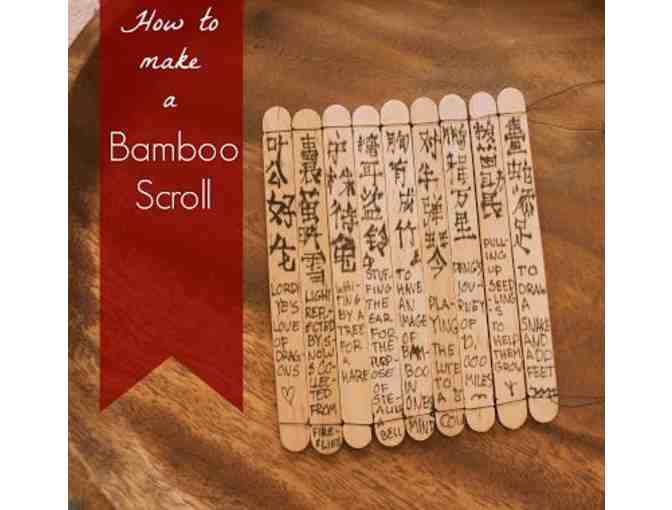 How to
make
a
Bamboo
Scroll
叶公好龙
LORD
YE'S
LOVE
OF
DRAG-
ONS
囊萤映雪
LIGHT
REFL-
ECTED
BY S-
NOW
& COL-
LECTED
FROM
FIRE-
FLIES
守株待兔
WAI-
TING
BY A
TREE
FOR
A
HARE
掩耳盗铃
STUF-
FING
THE
EAR
FOR
THE
PURP-
OSE
OF
STE-
ALING
A
BELL
胸有成竹
TO
HAVE
AN
IMAGE
OF
BAM-
BOO
IN
ONE'S
MIND
对牛弹琴
PLA-
YING
THE
LUTE
TO
A
COW
鹏程万里
PENG'S
JOU-
RNEY
OF
10,
000
MILES
揠苗助长
PULL-
ING
UP
SEED-
LING-
S
TO
HELP
THEM
GROW
畫蛇添足
TO
DRAW
A
SNAKE
AND
ADD
FEET